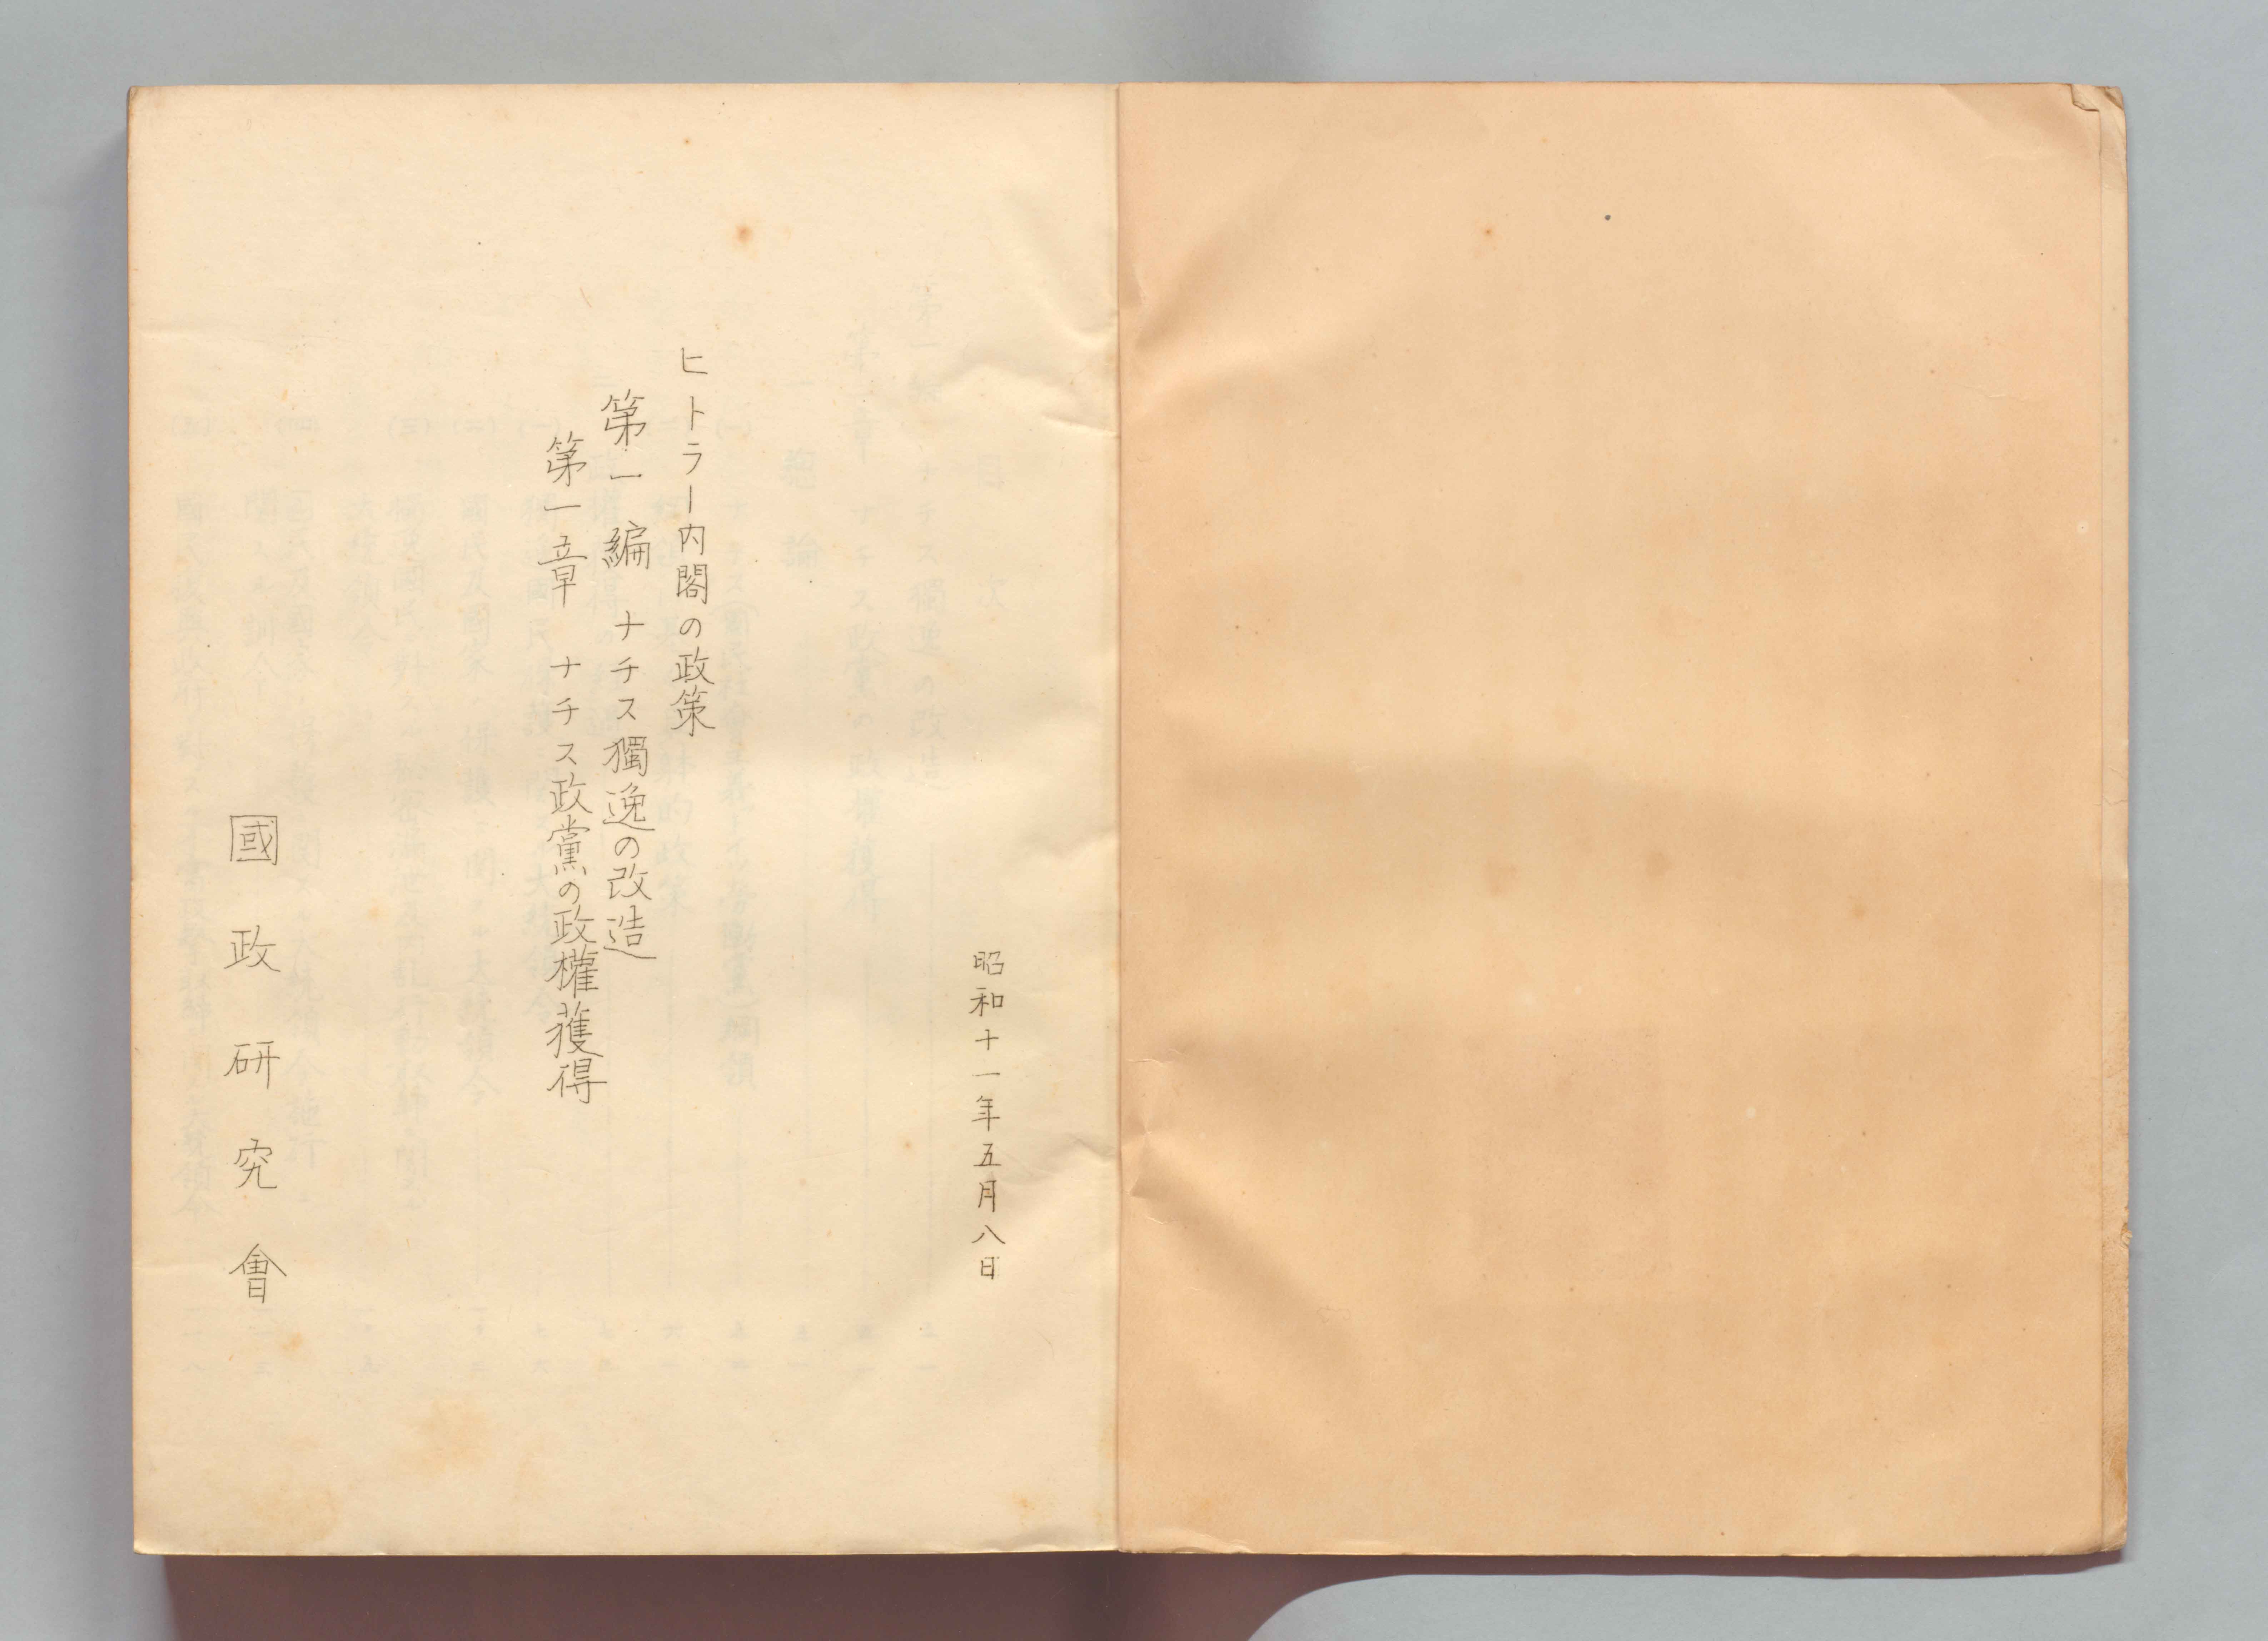 昭和十一年五月八日
ヒトラー内閣の政策
第一編 ナチス獨逸の改造
第一章 ナチス政黨の政權獲得
國政研究會